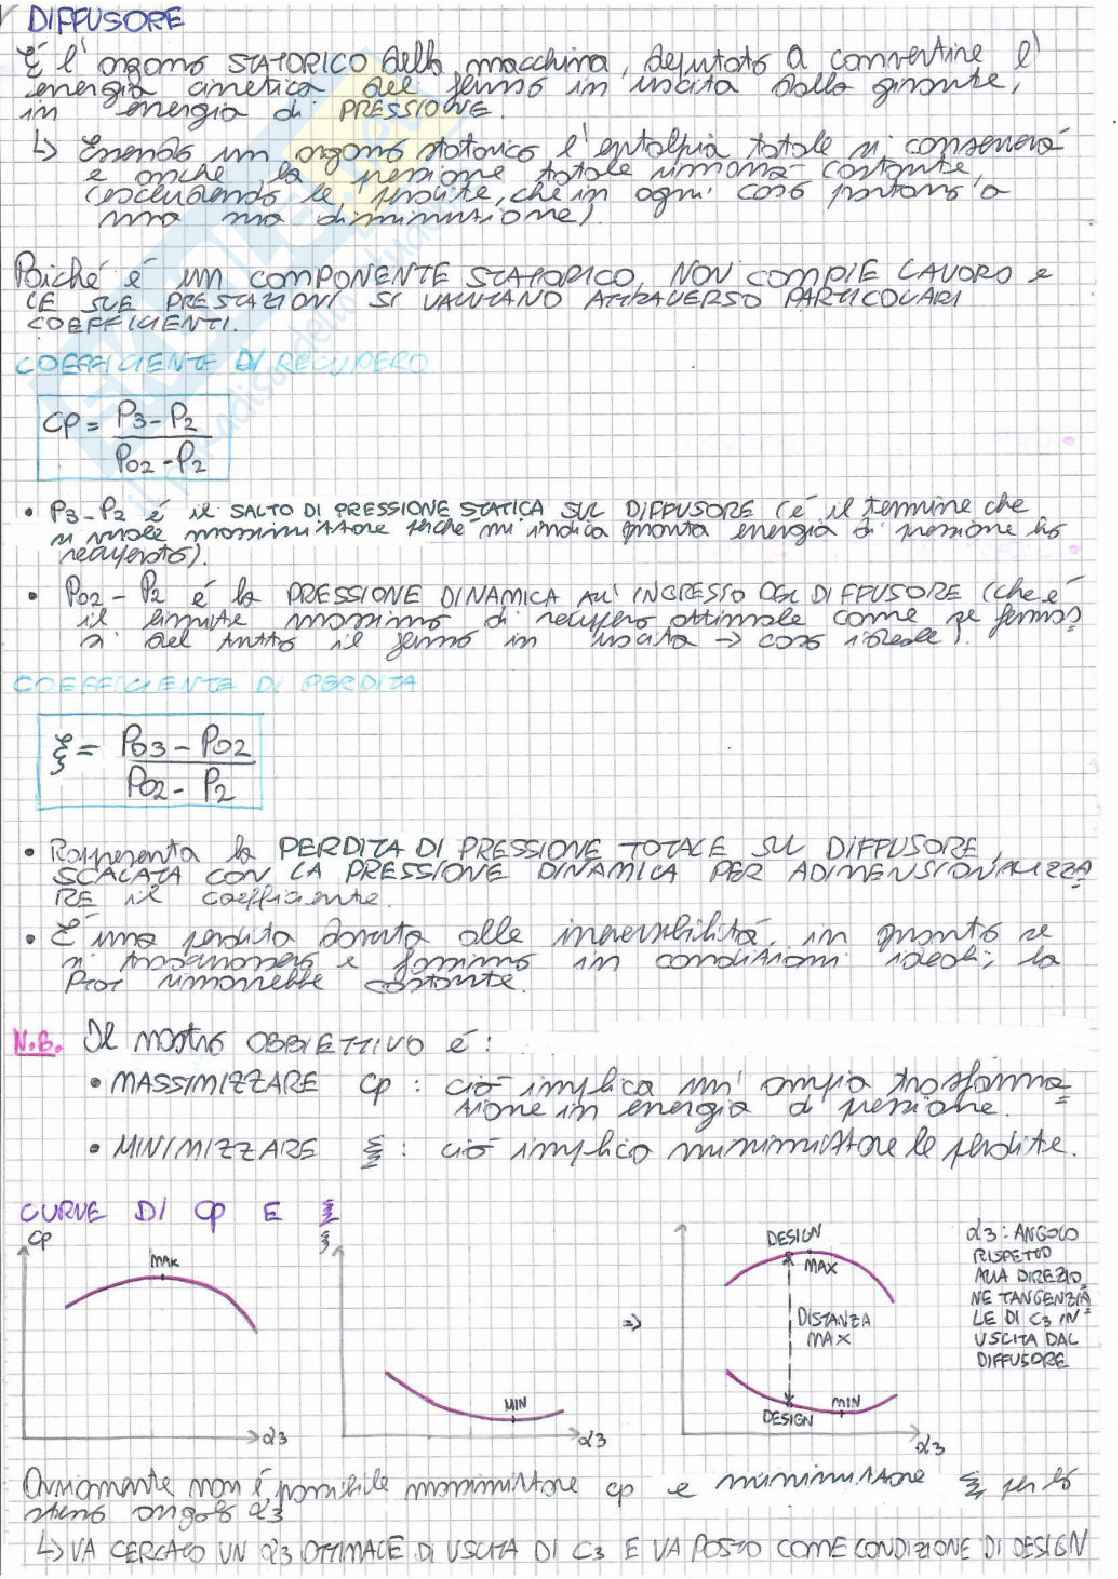 DIFFUSORE
É l'organo STATORICO della macchina, deputato a convertire l'
energia cinetica del fluido in uscita dalla girante,
in energia di PRESSIONE.
↳ Essendo un organo statorico l'entalpia totale si conserverà
e anche la pressione totale rimarrà costante,
(escludendo le perdite, che in ogni caso portano a
una sua diminuzione)
Poiché é un COMPONENTE STATORICO, NON COMPIE LAVORO e
LE SUE PRESTAZIONI SI VALUTANO ATTRAVERSO PARTICOLARI
COEFFICIENTI.
COEFFICIENTE DI RECUPERO
CP = P3 - P2 / P02 - P2
• P3 - P2 é il SALTO DI PRESSIONE STATICA SUL DIFFUSORE (é il termine che
si vuole massimizzare perché mi indica quanta energia di pressione ho
recuperato).
• P02 - P2 é la PRESSIONE DINAMICA ALL'INGRESSO DEL DIFFUSORE (che é
il limite massimo di recupero ottimale come se fermas
si del tutto il fluido in uscita → caso ideale).
COEFFICIENTE DI PERDITA
ξ = P03 - P02 / P02 - P2
• Rappresenta la PERDITA DI PRESSIONE TOTALE SUL DIFFUSORE,
SCALATA CON LA PRESSIONE DINAMICA PER ADIMENSIONALIZZA
RE il coefficiente.
• É una perdita dovuta alle irreversibilità, in quanto se
si trascurassero e fossimo in condizioni ideali, la
Ptot rimarrebbe costante.
N.B. Il nostro OBBIETTIVO é:
• MASSIMIZZARE Cp: ciò implica un'ampia trasforma=
zione in energia di pressione.
• MINIMIZZARE ξ: ciò implica minimizzare le perdite.
CURVE DI Cp E ξ
Cp
MAX
α3
ξ
MIN
α3
⇒
DESIGN
MAX
DISTANZA
MAX
MIN
DESIGN
α3
α3: ANGOLO
RISPETTO
ALLA DIREZIO
NE TANGENZIA
LE DI C3 IN
USCITA DAL
DIFFUSORE
Ovviamente non é possibile massimizzare Cp e minimizzare ξ per lo
stesso angolo α3
↳ VA CERCATO UN α3 OTTIMALE DI USCITA DI C3 E VA POSTO COME CONDIZIONE DI DESIGN